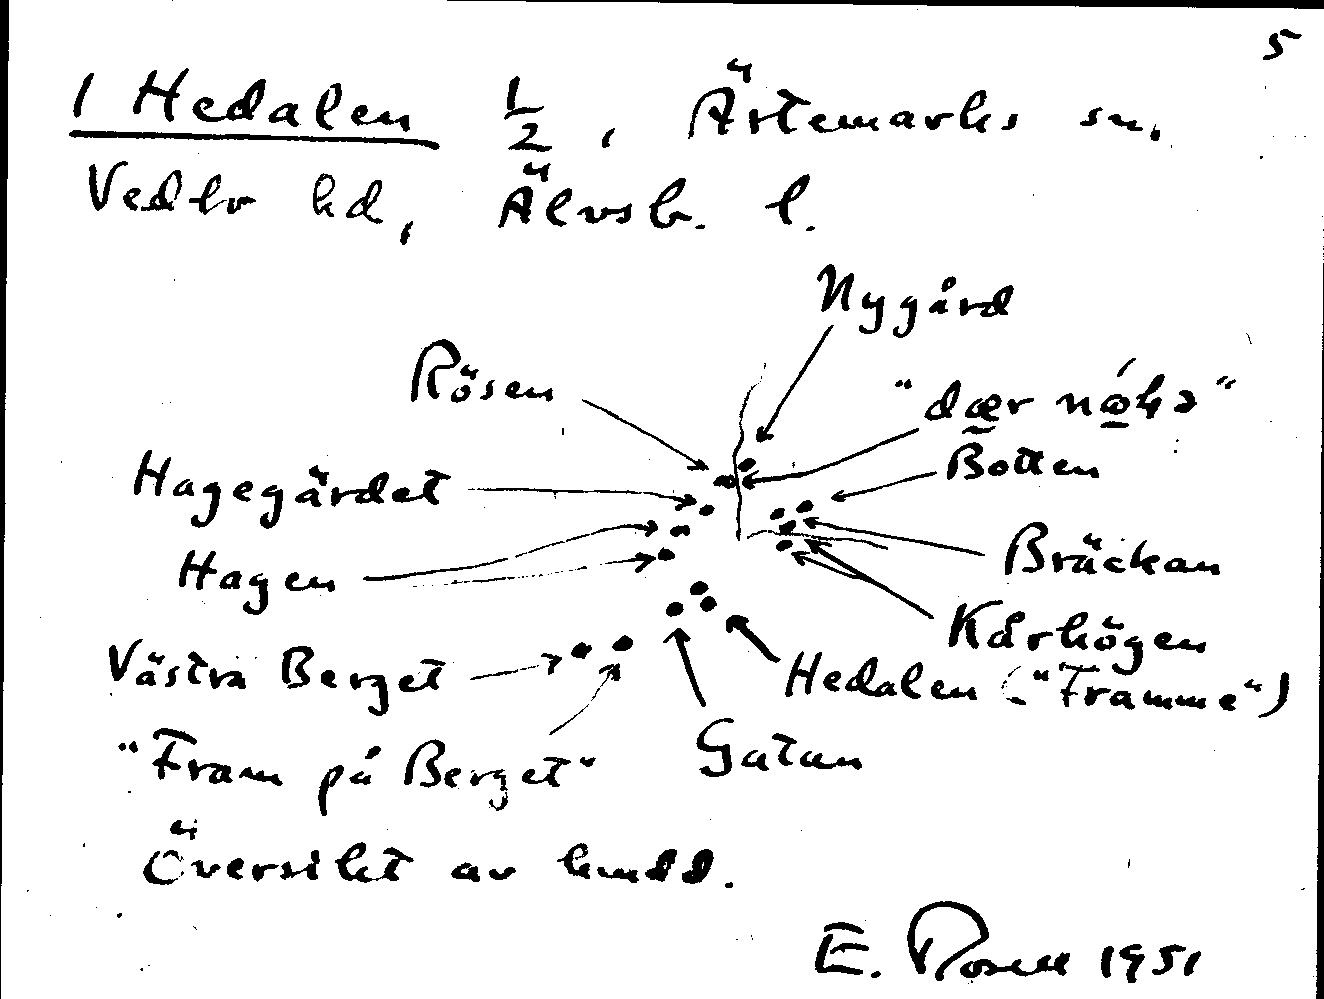 5
1 Hedalen 1/2, Ärtemarks sn,
Vedbo hd, Älvsb. l.
Nygård
Rösen
"dær nǿkə"
Botten
Hagegärdet
Bräckan
Hagen
Kärhögen
Västra Berget
Hedalen ("Framme")
"Fram på Berget"
Gatan
Översikt av hmdd.
E. Rosell 1951